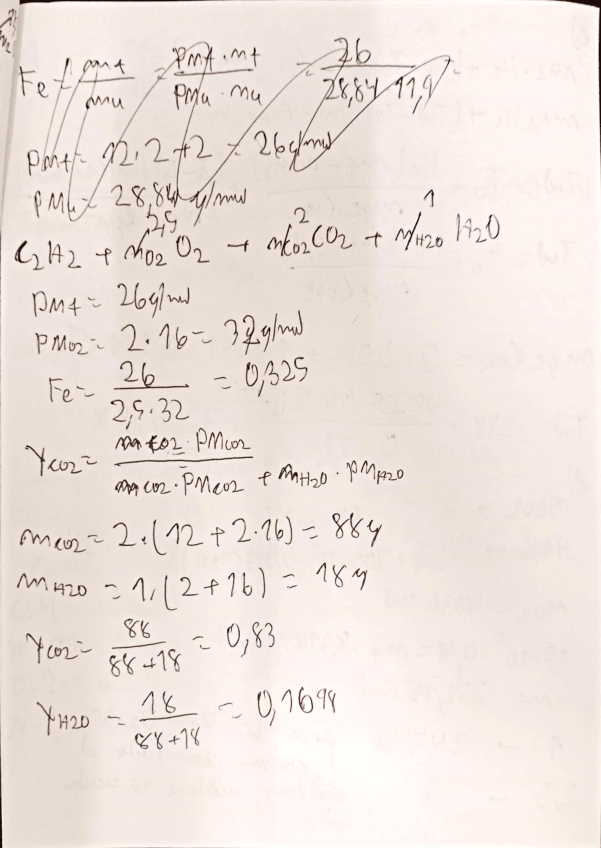 Fe = mt / mu = PMt · mt / PMu · mu = 26 / 28,84 · 11,9
PMt = 12 · 2 + 2 = 26 g/mol
PMu = 28,84 g/mol
C2H2 + 2,5 mO2 O2 → 2 mCO2 CO2 + 1 mH2O H2O
PMt = 26 g/mol
PMO2 = 2 · 16 = 32 g/mol
Fe = 26 / 2,5 · 32 = 0,325
YCO2 = mCO2 · PMCO2 / mCO2 · PMCO2 + mH2O · PMH2O
mCO2 = 2 · (12 + 2 · 16) = 88 g
mH2O = 1 · (2 + 16) = 18 g
YCO2 = 88 / 88 + 18 = 0,83
YH2O = 18 / 88 + 18 = 0,1698